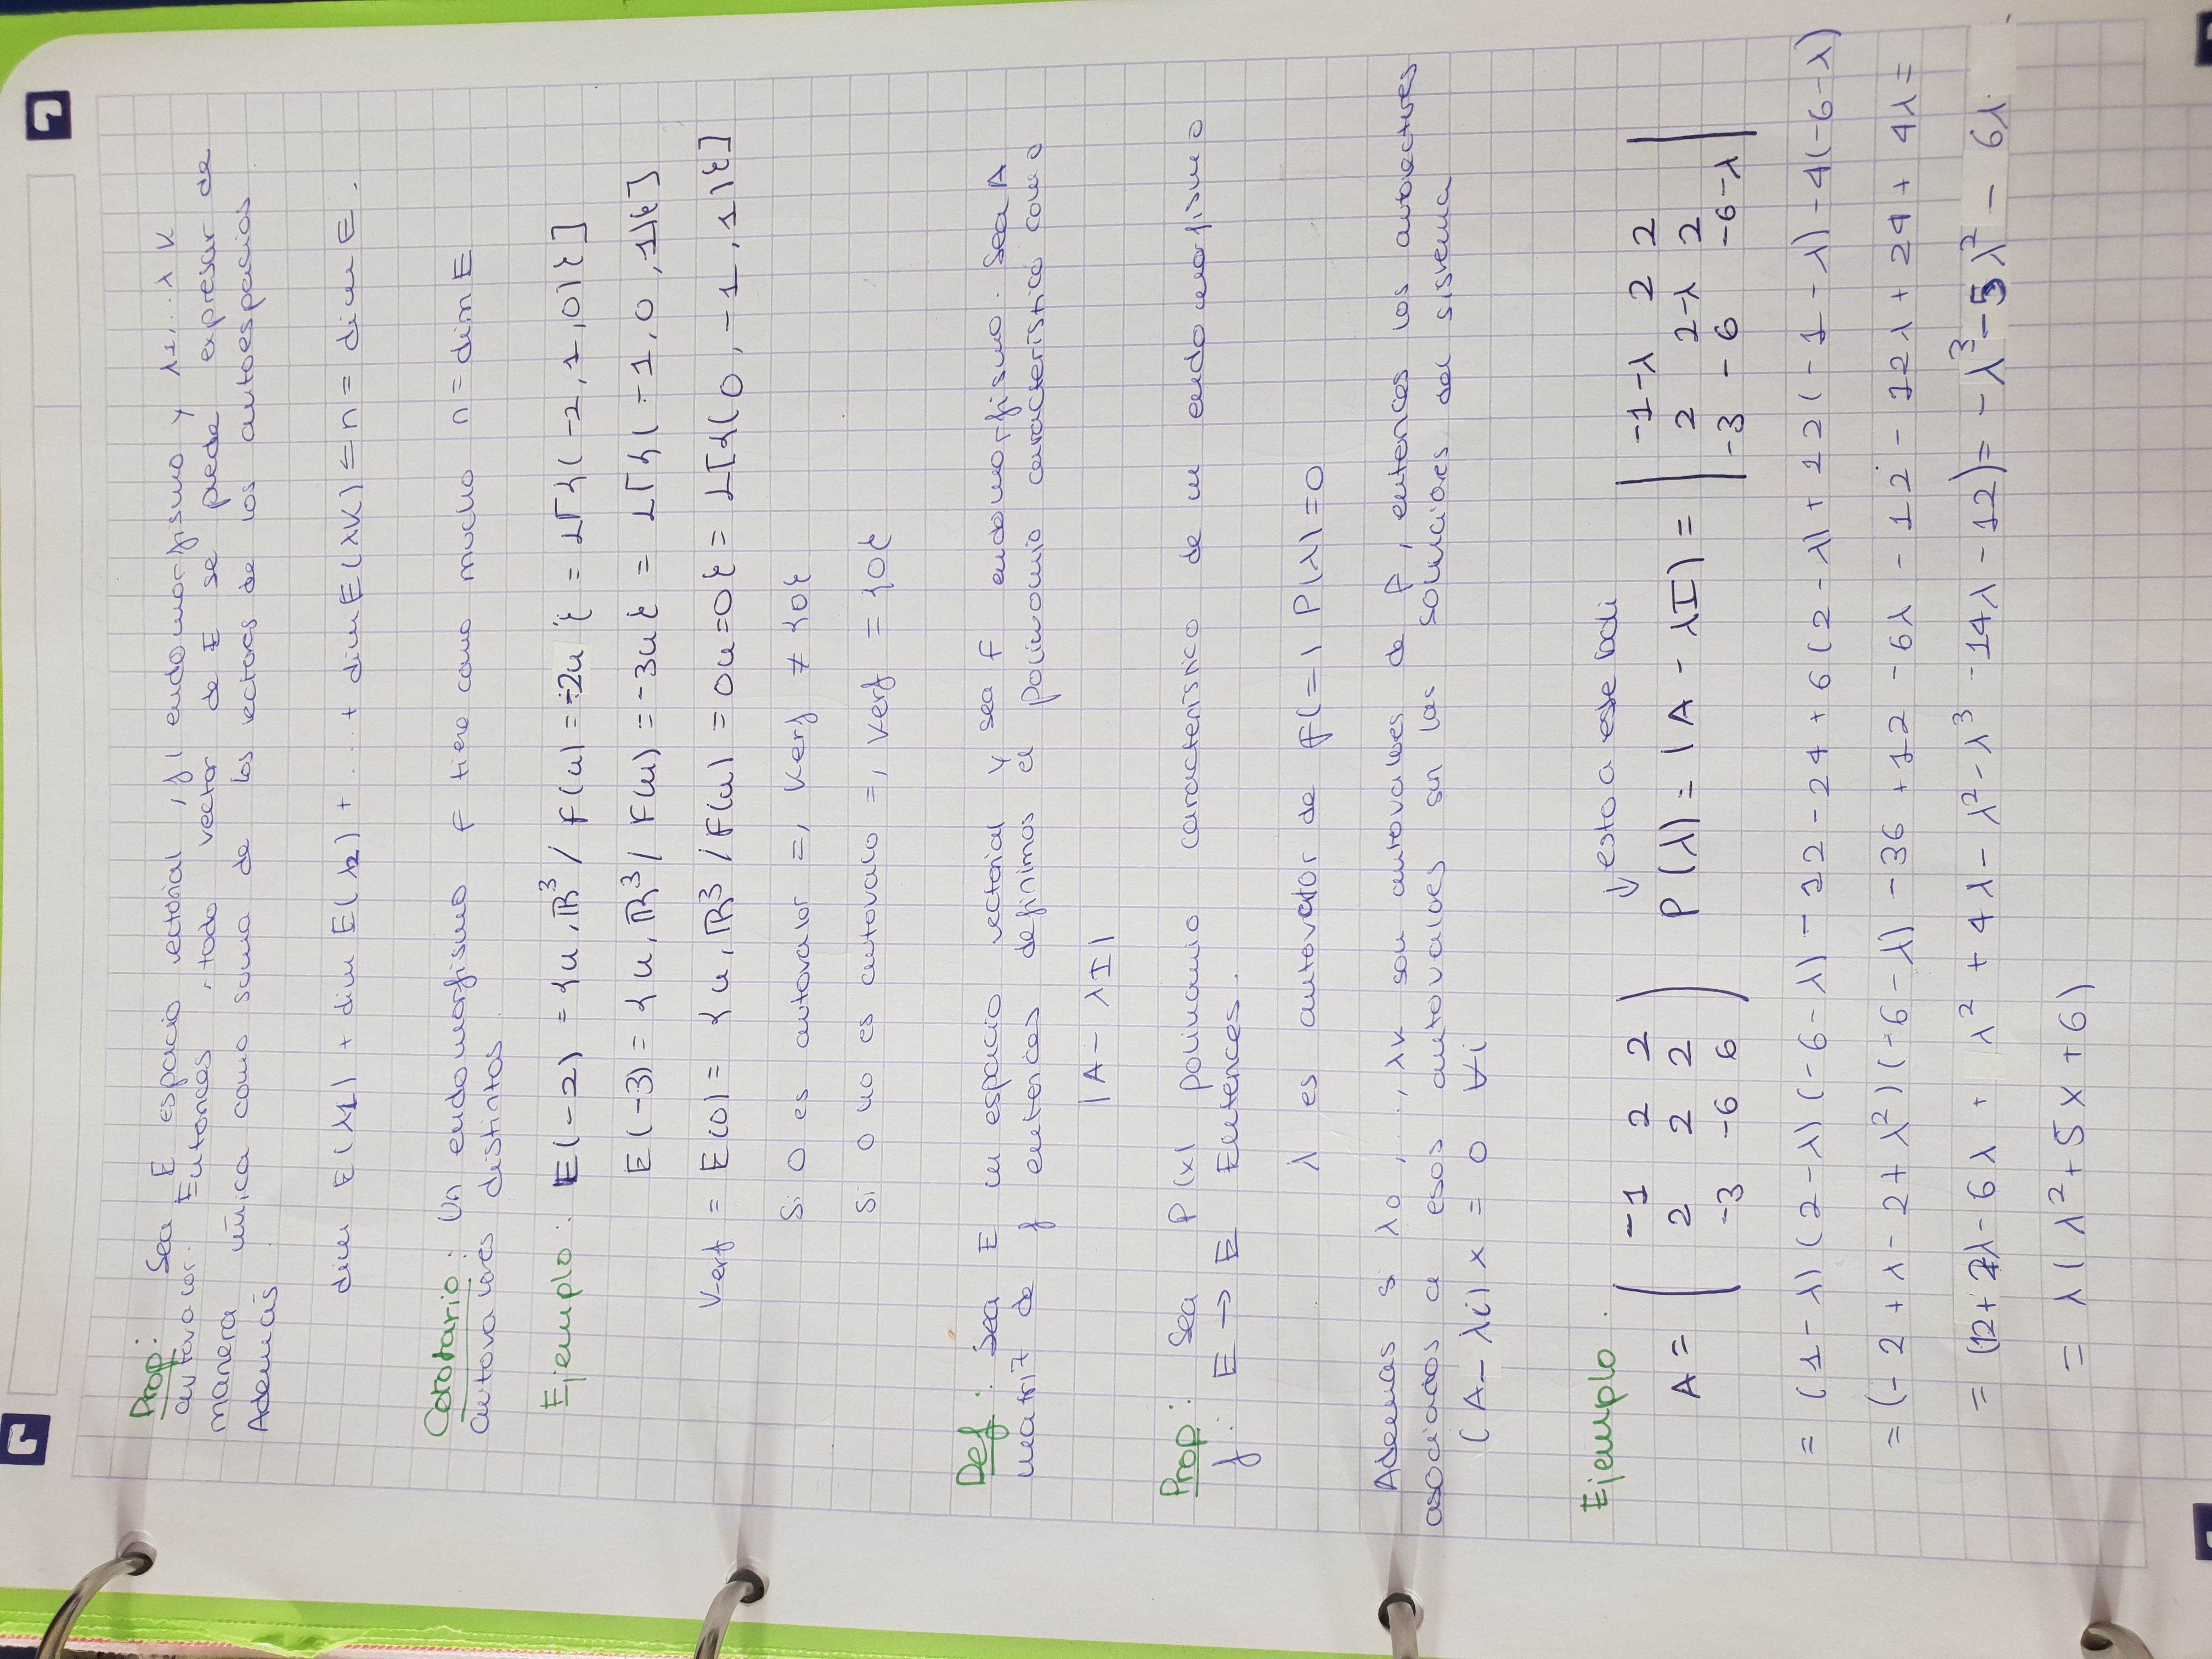 Prop: Sea E espacio vectorial, f endomorfismo y λ1,...λK
autovalor. Entonces, todo vector de E se puede expresar de
manera única como suma de los vectores de los autoespacios
Además
dim E(λ1) + dim E(λ2) + ... + dim E(λK) ≤ n = dim E.
Corolario: Un endomorfismo F tiene como mucho n = dim E
autovalores distintos.
Ejemplo: E(-2) = {u, ℝ³ / F(u) = -2u} = L[{(-2, 1, 0)}]
E(-3) = {u, ℝ³ / F(u) = -3u} = L[{(-1, 0, 1)}]
Kerf = E(0) = {u, ℝ³ / F(u) = 0u = 0} = L[{(0, -1, 1)}]
Si 0 es autovalor =, Kerf ≠ {0}
Si 0 no es autovalo =, Kerf = {0}
Def: Sea E un espacio vectorial y sea F endomorfismo. Sea A
matriz de f entonces definimos el polinomio característico como
|A - λI|
Prop: Sea P(x) polinomio característico de un endomorfismo
f: E → E Entences.
λ es autovalor de f (=) P(λ) = 0
Ademas si λ0, ..., λK son autovalores de f, entonces los autovectores
asociados a esos autovalores son las soluciones del sistema
(A - λi) x = 0 ∀i
Ejemplo. ↓ esto a ese
A = ( -1 2 2 P(λ) = |A - λI| = | -1-λ 2 2 |
2 2 2 2 2-λ 2
-3 -6 6 ) -3 -6 -6-λ |
= (1-λ)(2-λ)(-6-λ) - 12 - 24 + 6(2-λ) + 12(-1-λ) - 4(-6-λ)
= (-2 + λ - 2 + λ²)(-6-λ) - 36 + 12 - 6λ - 12 - 12λ + 24 + 4λ =
= (12 + 2λ - 6λ + λ² + 4λ - λ² - λ³ - 14λ - 12) = -λ³ - 5λ² - 6λ.
= λ(λ² + 5x + 6)